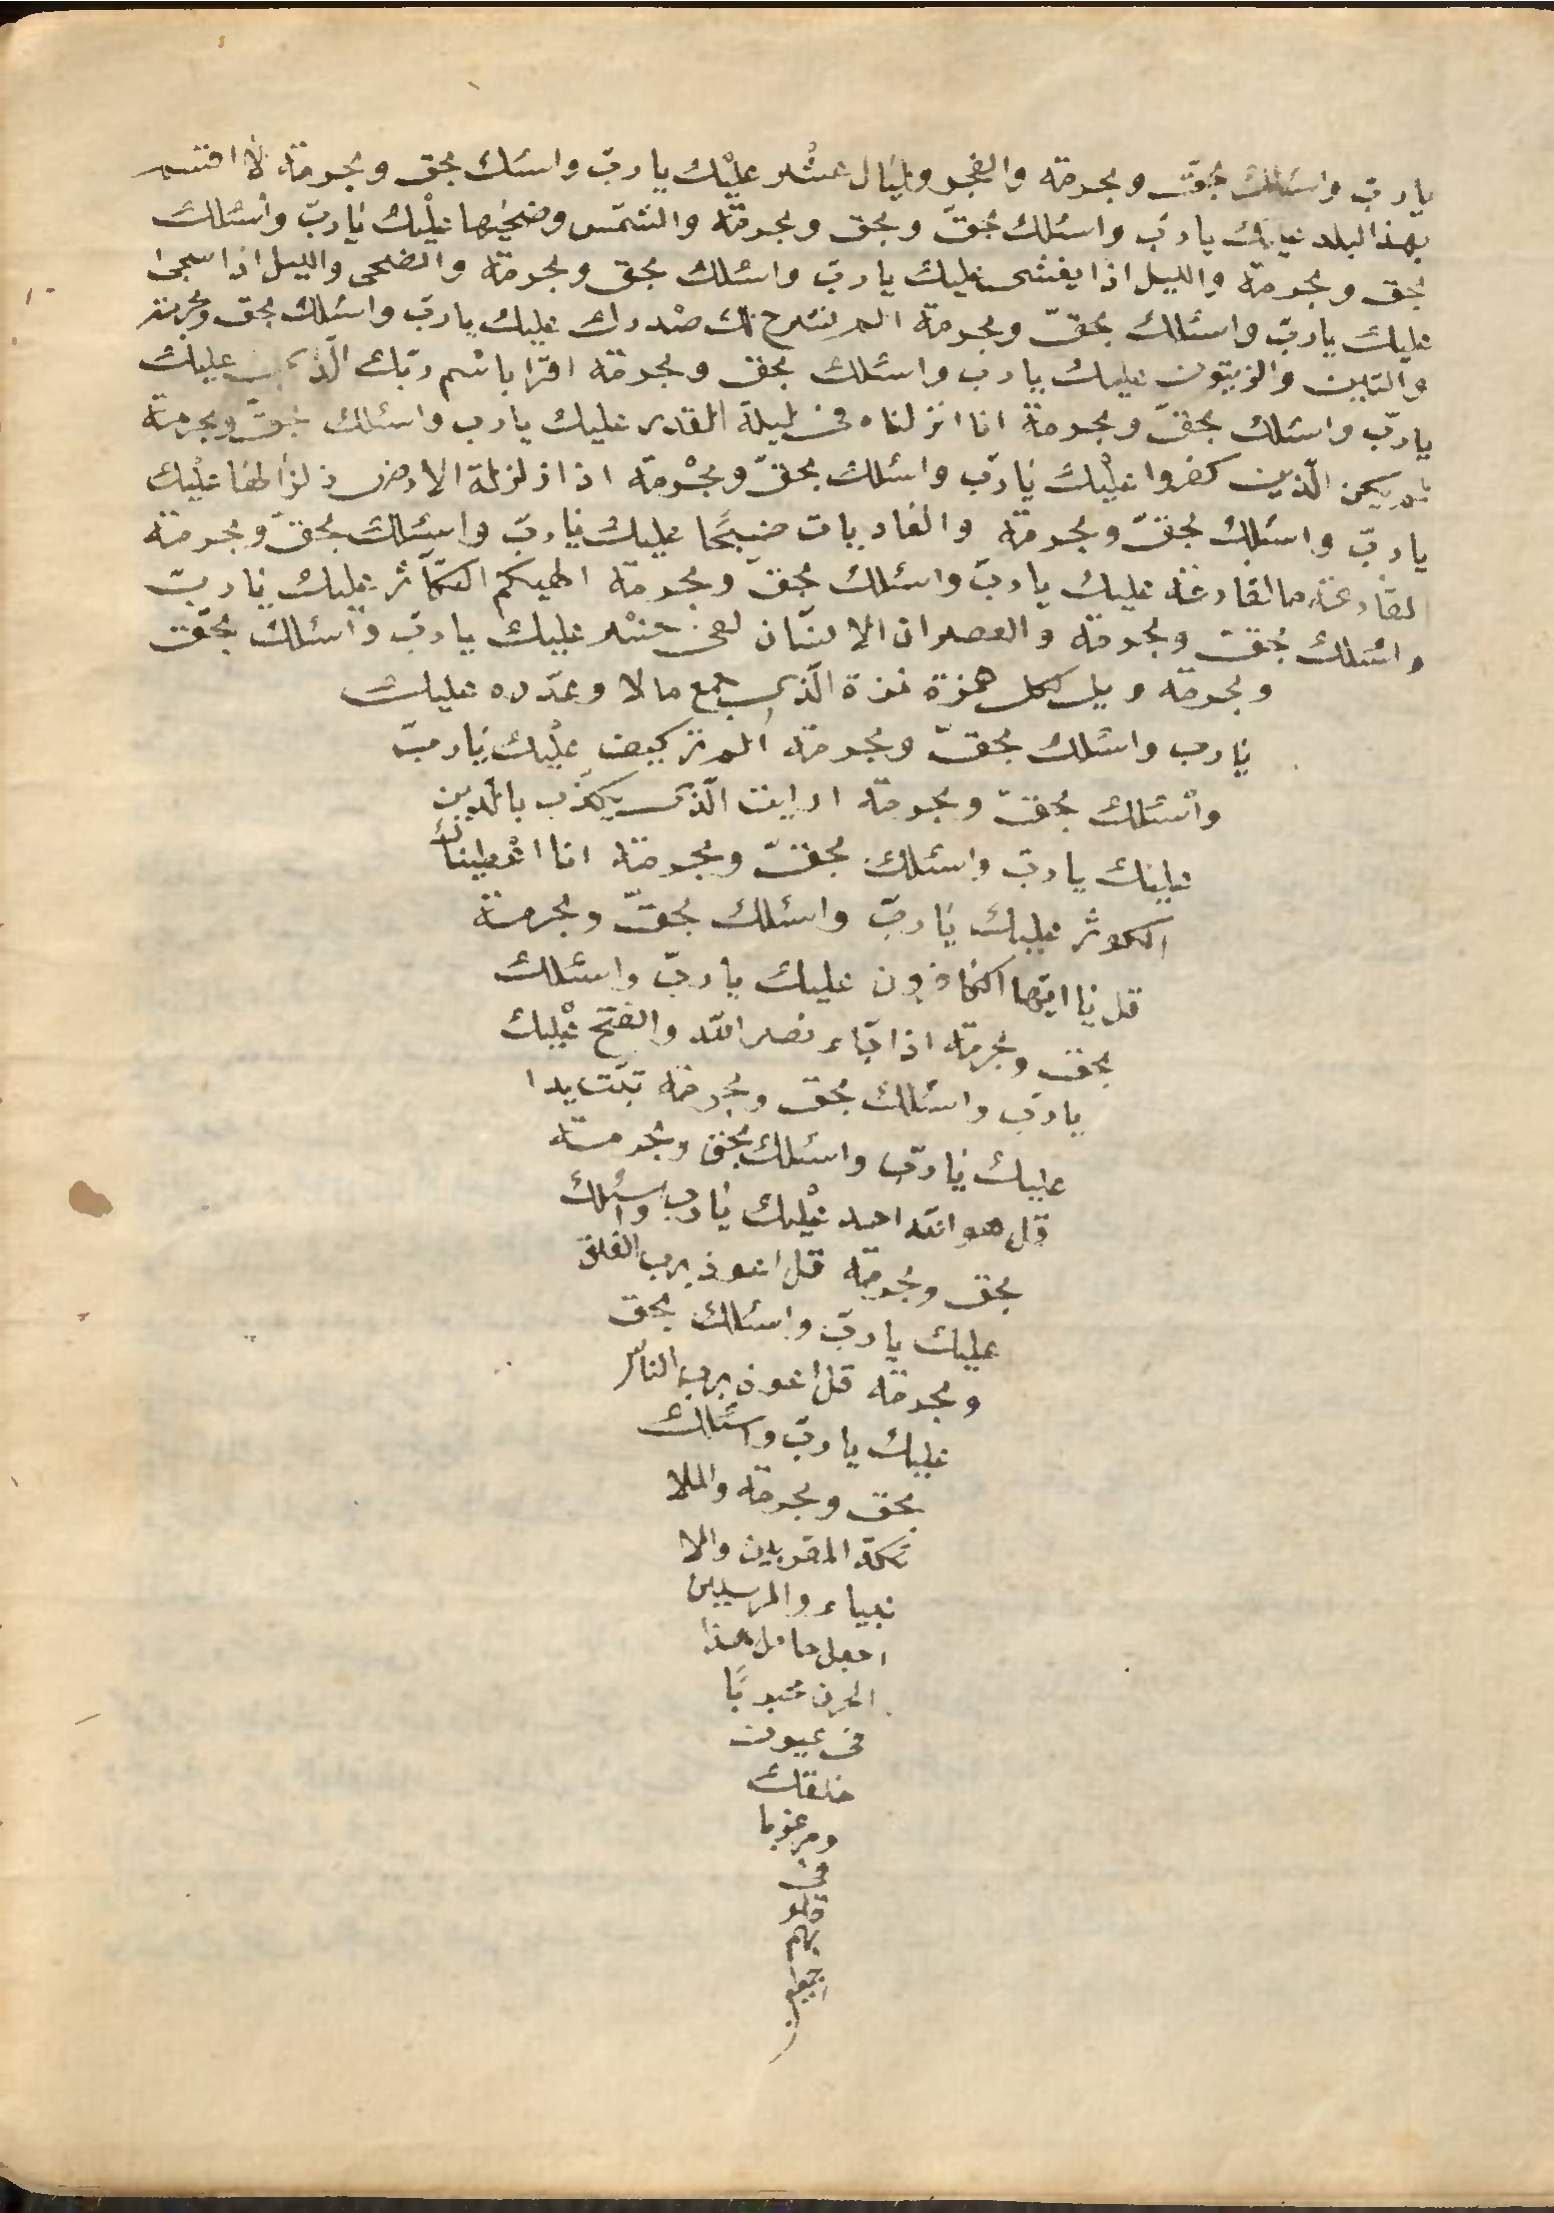 يا ربّ واسئلك بحقّ وبحرمة والفجر وليال عشر عليك يا ربّ واسئلك بحق وبحرمة لا اقسم
بهذا البلد عليك يا ربّ واسئلك بحقّ وبحق وبحرمة والشمس وضحيها عليك يا ربّ واسئلك
بحق وبحرمة والليل اذا يغشى عليك يا ربّ واسئلك بحق وبحرمة والضحى والليل اذا سجى
عليك يا ربّ واسئلك بحقّ وبحرمة الم نشرح لك صدرك عليك يا ربّ واسئلك بحق وبحرمة
والتين والزيتون عليك يا رب واسئلك بحق وبحرمة اقرا باسم ربّك الّذى عليك
يا ربّ واسئلك بحقّ وبحرمة انا انزلناه فى ليلة القدر عليك يا رب واسئلك بحقّ وبحرمة
لم يكن الّذين كفروا عليك يا ربّ واسئلك بحقّ وبحرمة اذا زلزلة الارض زلزالها عليك
يا ربّ واسئلك بحقّ وبحرمة والعاديات ضبحًا عليك يا ربّ واسئلك بحقّ وبحرمة
لقارعة ما القارعة عليك يا ربّ واسئلك بحقّ وبحرمة الهيكم التكاثر عليك يا ربّ
واسئلك بحقّ وبحرمة والعصر ان الانسان لفى خسر عليك يا ربّ واسئلك بحقّ
وبحرمة ويل لكل همزة لمزة الّذى جمع مالا وعدّده عليك
يا رب واسئلك بحقّ وبحرمة الم تر كيف عليك يا ربّ
واسئلك بحقّ وبحرمة ارايت الّذى يكذّب بالدين
عليك يا ربّ واسئلك بحقّ وبحرمة انا اعطيناك
الكوثر عليك يا ربّ واسئلك بحقّ وبحرمة
قل يا ايّها الكافرون عليك يا ربّ واسئلك
بحق وبحرمة اذا جاء نصر الله والفتح عليك
يا ربّ واسئلك بحق وبحرمة تبّت يدا
عليك يا ربّ واسئلك بحق وبحرمة
قل هو الله احد عليك يا رب واسئلك
بحق وبحرمة قل اعوذ برب الفلق
عليك يا ربّ واسئلك بحق
وبحرمة قل اعوذ برب الناس
عليك يا ربّ واسئلك
بحق وبحرمة والملا
ئكة المقربين والا
نبياء والمرسلين
اجعل حامل هذا
الحرز محبوبًا
فى عيون
خلقك
ومرغوبا
فى
قلو
بهم
اجمعين